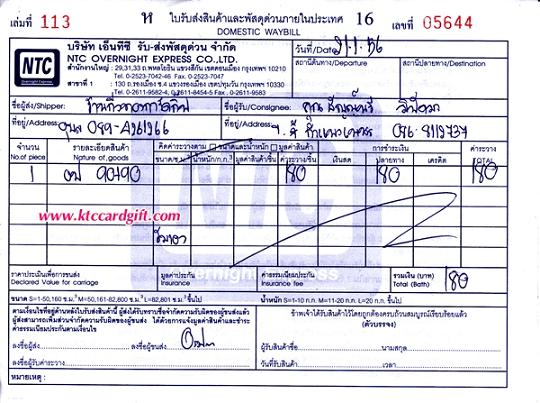 เล่มที่ 113 ห ใบรับส่งสินค้าและพัสดุด่วนภายในประเทศ 16 เลขที่ 05644
DOMESTIC WAYBILL
NTC
Overnight Express
บริษัท เอ็นทีซี รับ-ส่งพัสดุด่วน จำกัด
NTC OVERNIGHT EXPRESS CO.,LTD.
สำนักงานใหญ่ : 29,31,33 ถ.พหลโยธิน แขวงสีกัน เขตดอนเมือง กรุงเทพฯ 10210
Tel. 0-2523-7042-46 Fax. 0-2523-7047
สาขาที่ 1 : 130 ถ.รองเมือง ซ.4 แขวงรองเมือง เขตปทุมวัน กรุงเทพฯ 10330
Tel. 0-2611-9582-4, 0-2611-8454-5 Fax. 0-2611-9583
วันที่/Date 21/1/56
สถานีต้นทาง/Departure สถานีปลายทาง/Destination
ชื่อผู้ส่ง/Shipper: ชื่อผู้รับ/Consignee: คุณ
ที่อยู่/Address: 089-4261266 ที่อยู่/Address: 086-8119737
จำนวน รายละเอียดสินค้า คิดค่าระวางตาม ขนาดและน้ำหนัก มูลค่าสินค้า การชำระเงิน ค่าระวาง
No.of piece Nature of goods ขนาด/ซ.ม. น้ำหนัก/ก.ก. มูลค่าสินค้า/ชิ้น ค่าระวาง/ชิ้น เงินสด ปลายทาง เครดิต TOTAL
1 90*90 180 180 180
www.ktccardgift.com
NTC
Overnight Express
ราคาประเมินเพื่อการขนส่ง มูลค่าประกัน ค่าธรรมเนียมประกัน รวมเงิน (บาท) 180
Declared Value for carriage Insurance Insurance fee Total (Bath)
ขนาด S=1-50,160 ซ.ม.³ M=50,161-82,800 ซ.ม.³ L=82,801 ซ.ม.³ ขึ้นไป น้ำหนัก S=1-10 ก.ก. M=11-20 ก.ก. L=20 ก.ก. ขึ้นไป
ข้าพเจ้าได้รับสินค้าไว้โดยถูกต้องครบถ้วนสมบูรณ์เรียบร้อยแล้ว
(ตัวบรรจง)
ลงชื่อผู้รับ ลงชื่อผู้ส่ง ผู้รับสินค้าชื่อ นามสกุล
ลงชื่อผู้รับค่าระวาง วันที่รับสินค้า เวลา
หมายเหตุ :